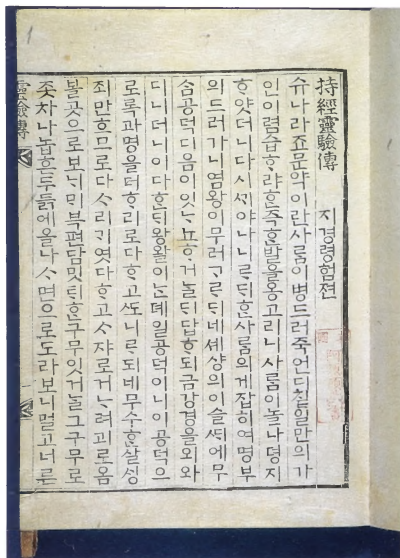 1
持經靈驗傳 지경령험젼
슈나라죠문약이란사ᄅᆞᆷ이병드러죽언디칠일만의가
인이렴습ᄒᆞ랴ᄒᆞᆫ즉ᄒᆞᆫ발을옹고리니사ᄅᆞᆷ이놀나뎡지
ᄒᆞ얏더니다시ᄭᆡ야나니ᄅᆞ되ᄒᆞᆫ사ᄅᆞᆷ의게잡히여명부
의드러가니염왕이무러ᄀᆞ로ᄃᆡ네셰샹의이슬ᄶᅦ에무
ᄉᆞᆷ공덕디음이잇ᄂᆞ뇨ᄒᆞ거ᄂᆞᆯᄃᆡ답ᄒᆞ되금강경을외와
디니더니이다ᄒᆞᆫᄃᆡ왕왈이ᄂᆞᆫ뎨일공덕이니이공덕으
로록과명을더ᄒᆞ리로다ᄒᆞ고ᄯᅩ니ᄅᆞ되네무수ᄒᆞᆫ살싱
죄만흐므로다ᄉᆞ리기엿다ᄒᆞ고ᄉᆞ쟈로거ᄂᆞ려괴로옴
볼곳으로보ᄂᆡ미북편담밋ᄐᆡᄒᆞᆫ구무잇거ᄂᆞᆯ그구무로
좃차나놉흔두듥에올나ᄉᆞ면으로도라보니멀고너ᄅᆞᆫ
靈驗傳